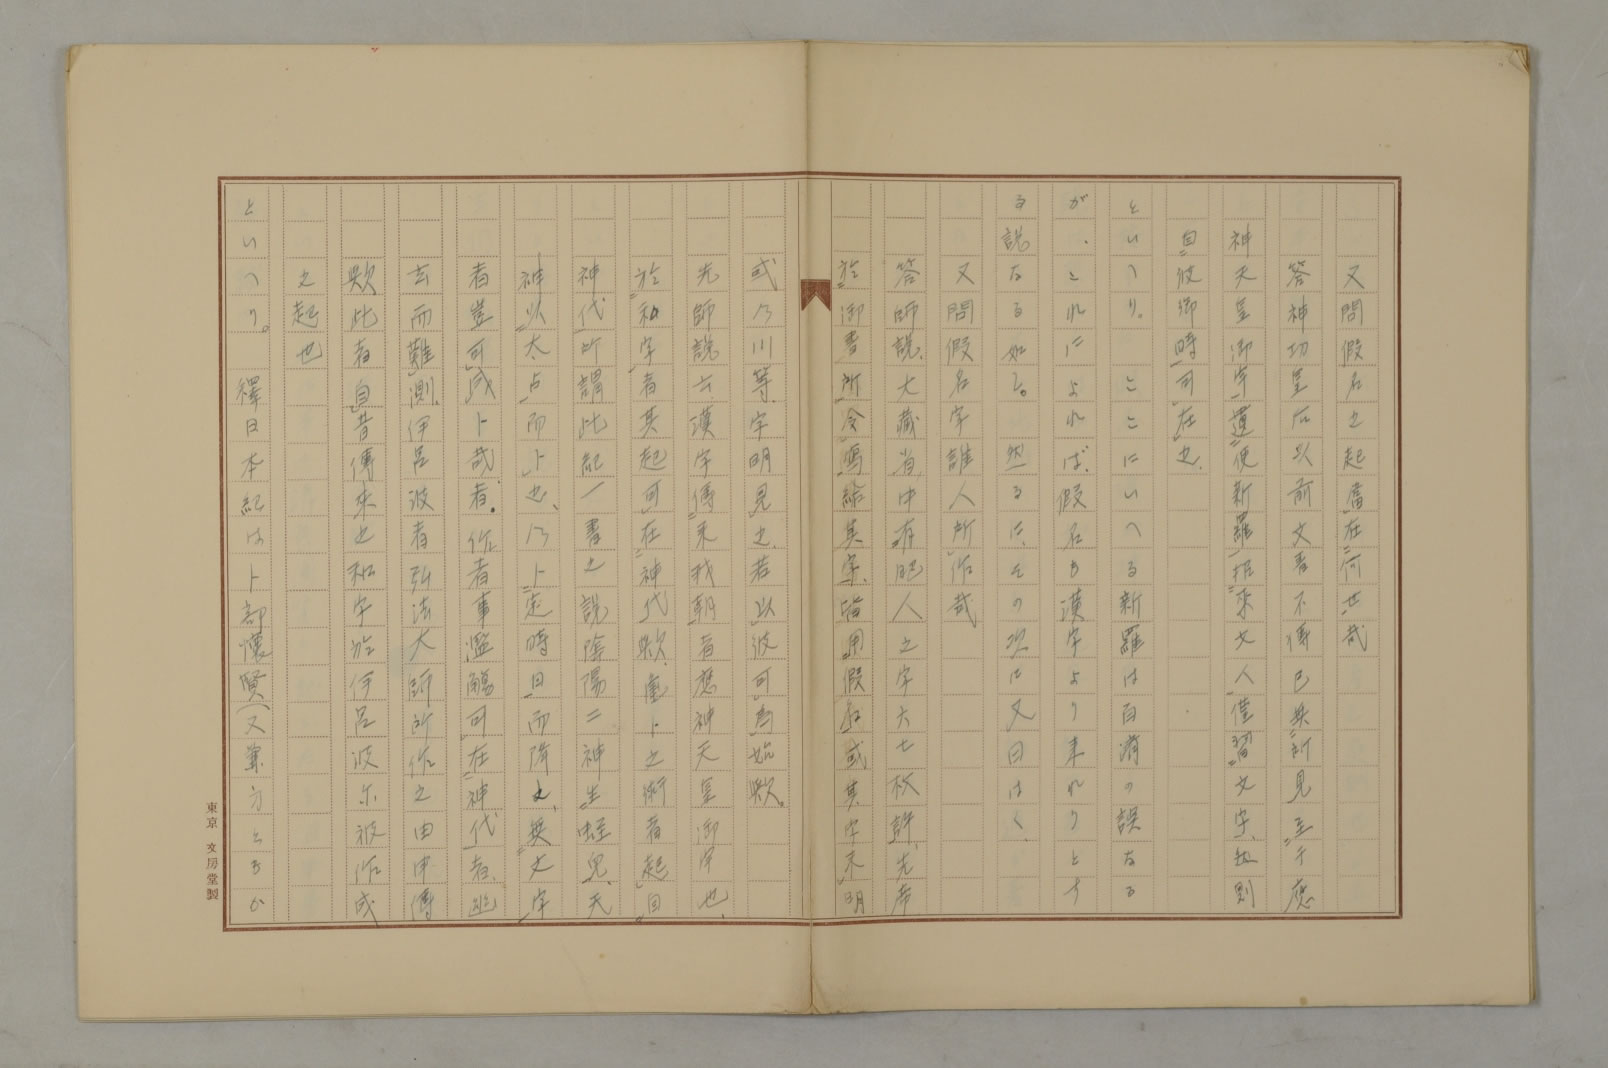 又問假名之起當在何世哉
答神功皇后以前文書不傳已無所見至于應
神天皇御宇遣使新羅招來文人僅習文字、然則
自彼御時可在也、
といへり。ここにいへる新羅は百濟の誤なる
が、これによれば、假名も漢字より来れりとす
る説なる如し。然るに、その次に又曰はく、
又問假名字誰人所作哉
答師説、大藏省中有肥人之字六七枚許、先帝
於御書所令寫給其字、皆用假名或其字未明
或乃川等、字明見之、若以彼可爲始歟。
先師説云、漢字傳来我朝者應神天皇御宇也、
於和字者其起可在神代歟、龜卜之術者起自
神代所謂此紀一書之説陰陽二神生蛭兒、天
神以太占而卜之、乃卜定時日而降之、無文字
者豈可成卜哉者。作者事濫觴可在神代者、
云而難測、伊呂波者弘法大師所作之由申傳
歟此者自昔傳來之和字於伊呂波尓被作成
之起也
といへり。釋日本紀は卜部懷賢(又兼方ともか
東京 文房堂製